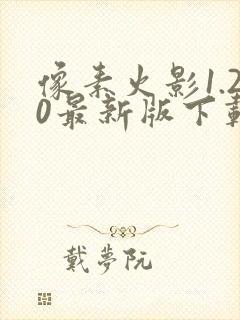 像素火影1.2
0最新版下载
戴夢阮